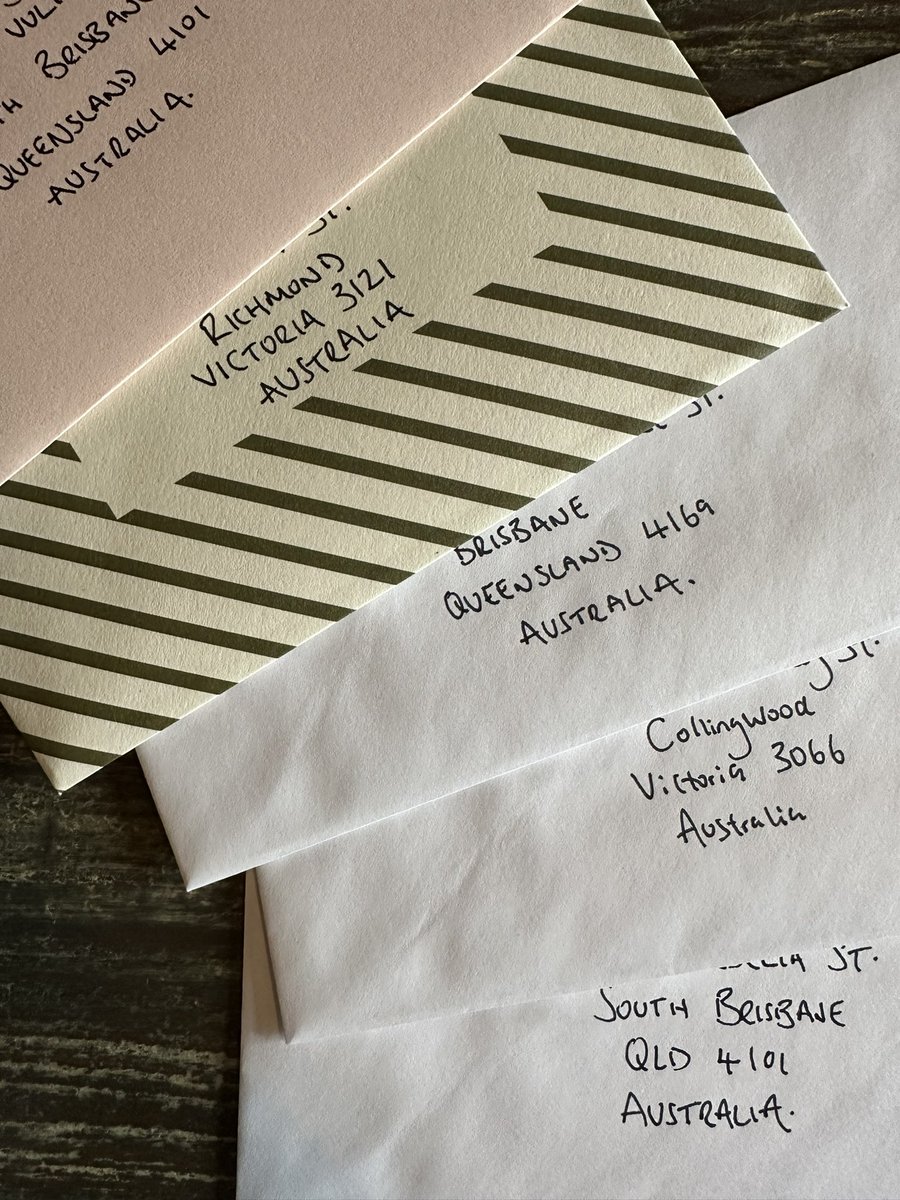 BRISBANE
QUEENSLAND 4101
AUSTRALIA.
ST.
RICHMOND
VICTORIA 3121
AUSTRALIA
ST.
BRISBANE
QUEENSLAND 4169
AUSTRALIA.
St.
Collingwood
Victoria 3066
Australia
ST.
SOUTH BRISBANE
QLD 4101
AUSTRALIA.